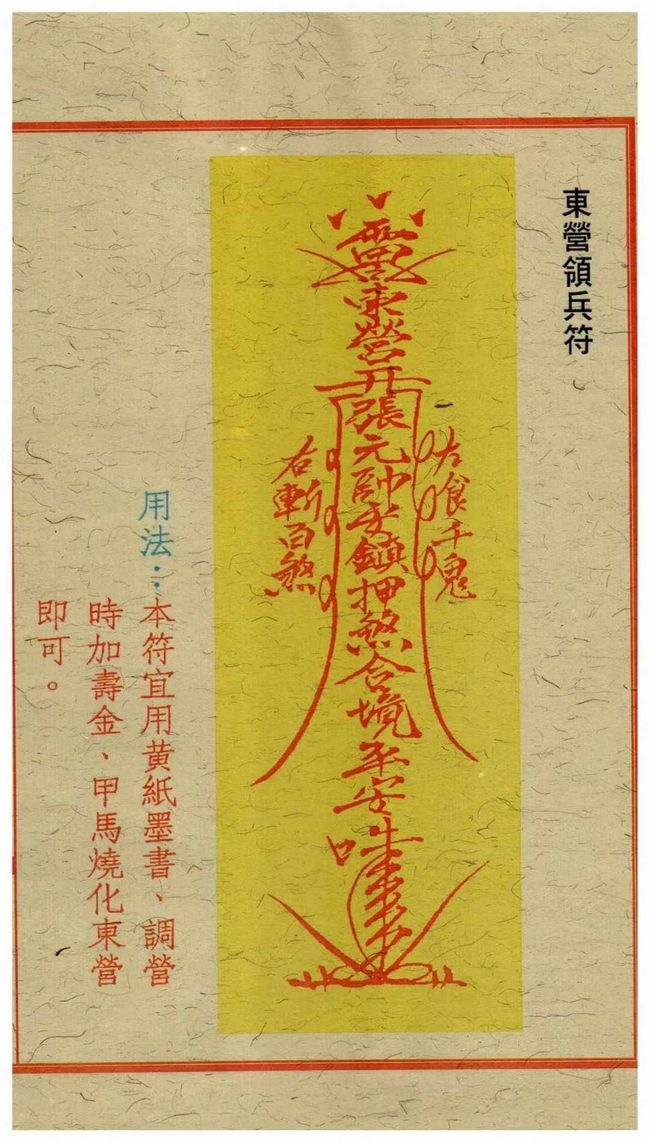 東營領兵符
東營張元帥安鎮押煞合境平安
左食千鬼
右斬百煞
用法：本符宜用黄紙墨書、調營
時加壽金、甲馬燒化東營
即可。